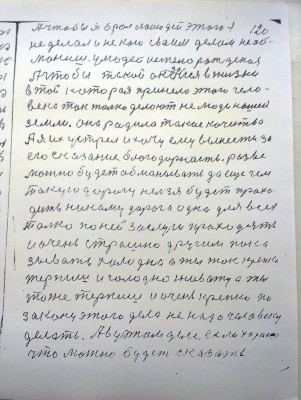 120
А чтобы я брал лошадей этого я
не делал и некого своим делом необ
манш. у людей
А чтобы такой в жизни
в той которая принесло этого чело-
века так только делают не люди нашей
земли. Оно родило такие качества
А я их устрел и хочу ему вынесть за
его сказание благодарность. разве
можно будет обманывать да еще чем
такую дорогу нельзя будет прохо-
дить никому дорога одна для всех
только по ней заслуги проходять
и очень страшно другим пока
зывать холодна а ты так крепко
терпиш и голодно живату а ты
тоже терпиш и очень крепко по
закону этого дела не надо человеку
делать. А в этом деле если хараст
что можно будет сказать